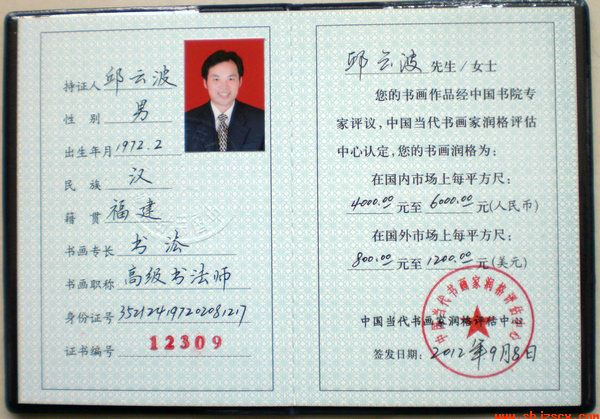 持证人 邱云波
性别 男
出生年月 1972.2
民族 汉
籍贯 福建
书画专长 书法
书画职称 高级书法师
身份证号 352124197202081217
证书编号 12309
邱云波 先生/女士
您的书画作品经中国书院专
家评议,中国当代书画家润格评估
中心认定,您的书画润格为:
在国内市场上每平方尺:
4000.00 元至 6000.00 元(人民币)
在国外市场上每平方尺:
800.00 元至 1200.00 元(美元)
中国当代书画家润格评估中心
中国当代书画家润格评估中心
签发日期: 2012年9月8日